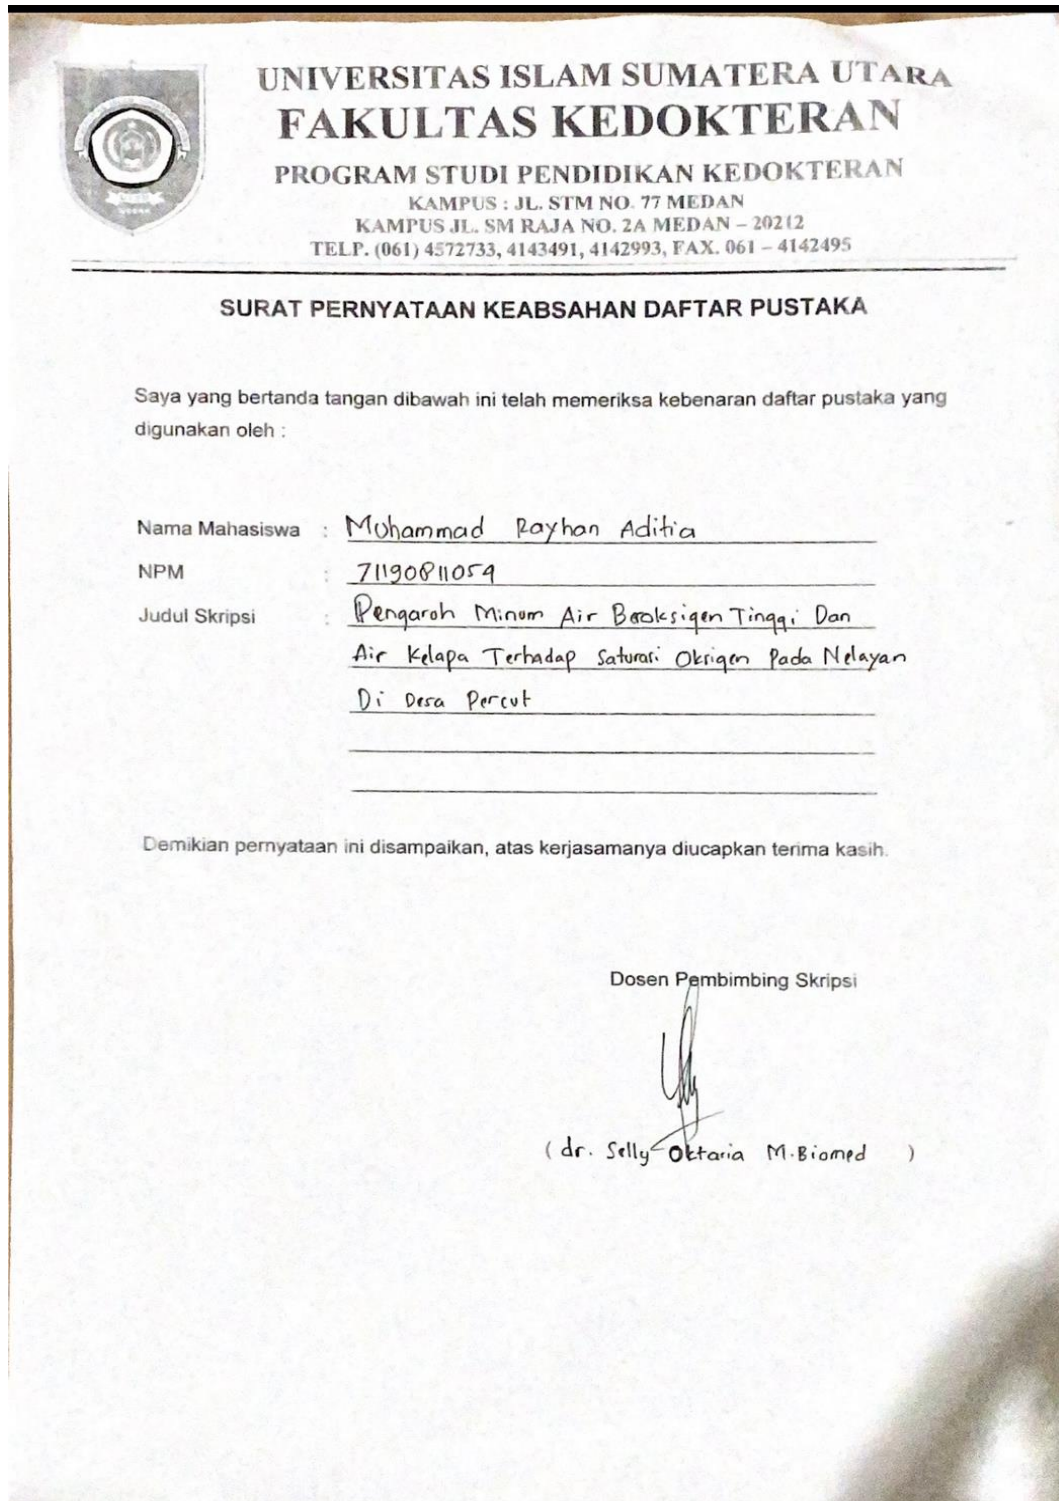 UNIVERSITAS ISLAM SUMATERA UTARA
FAKULTAS KEDOKTERAN
PROGRAM STUDI PENDIDIKAN KEDOKTERAN
KAMPUS : JL. STM NO. 77 MEDAN
KAMPUS JL. SM RAJA NO. 2A MEDAN – 20212
TELP. (061) 4572733, 4143491, 4142993, FAX. 061 – 4142495
SURAT PERNYATAAN KEABSAHAN DAFTAR PUSTAKA
Saya yang bertanda tangan dibawah ini telah memeriksa kebenaran daftar pustaka yang
digunakan oleh :
Nama Mahasiswa : Muhammad Rayhan Aditia
NPM : 71190811059
Judul Skripsi : Pengaruh Minum Air Beroksigen Tinggi Dan
Air Kelapa Terhadap Saturasi Oksigen Pada Nelayan
Di Desa Percut
Demikian pernyataan ini disampaikan, atas kerjasamanya diucapkan terima kasih.
Dosen Pembimbing Skripsi
( dr. Selly Oktaria M.Biomed )